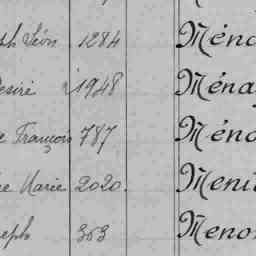 ph Léon 1284 Ména
esiré 1948 Ména
e François 787 Ména
ie Marie 2020. Menu
seph 353 Meno